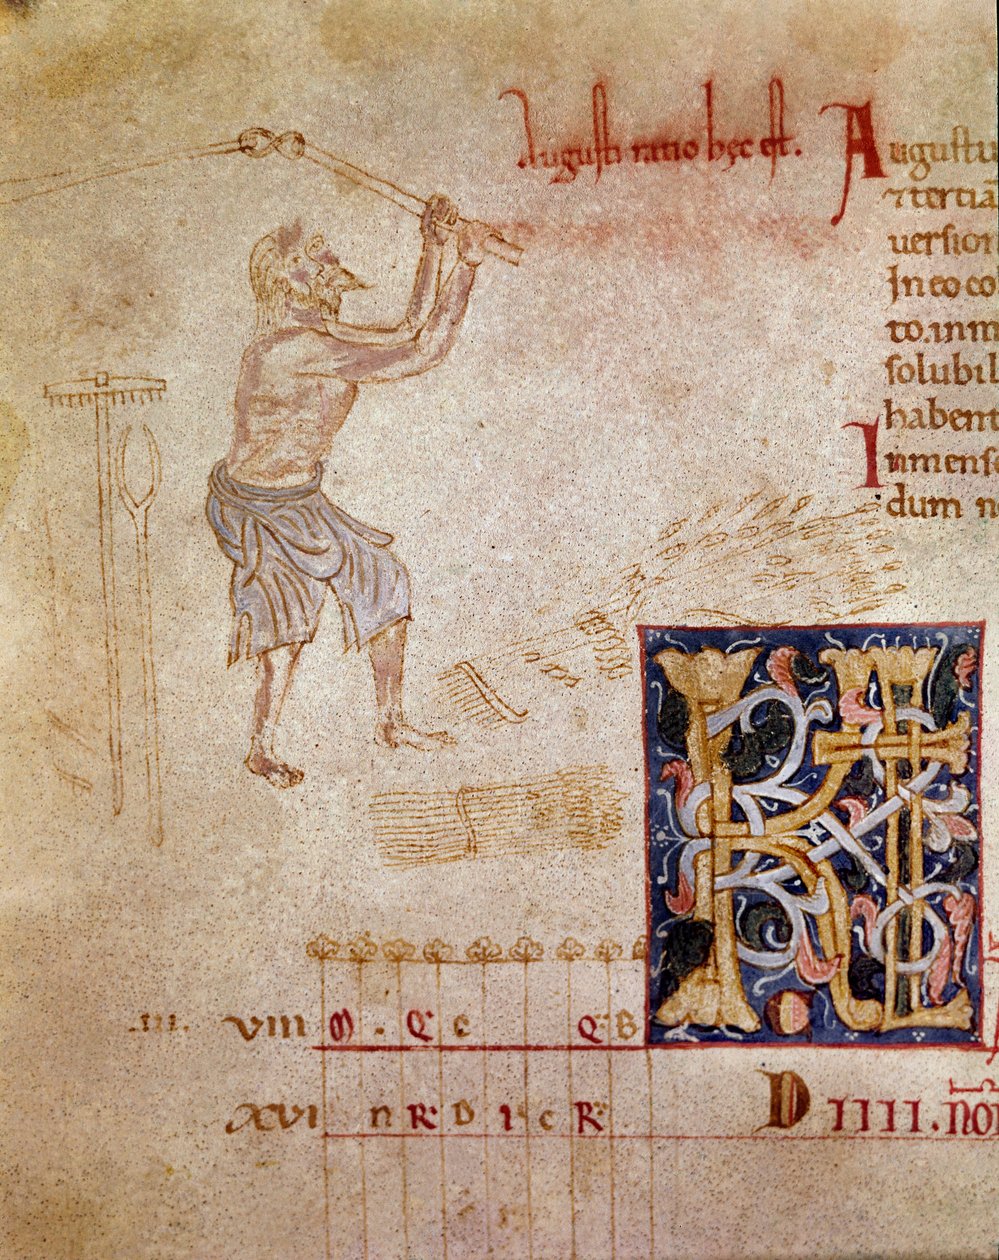 Augusti ratio hęc est.
Augustu
⁊ tertiā
version
In eo co
to. inm
solubil
habent
Inmense
dum n
KL
.III. VIII M . Q C Q B
XVI n R D I C R D IIII. no